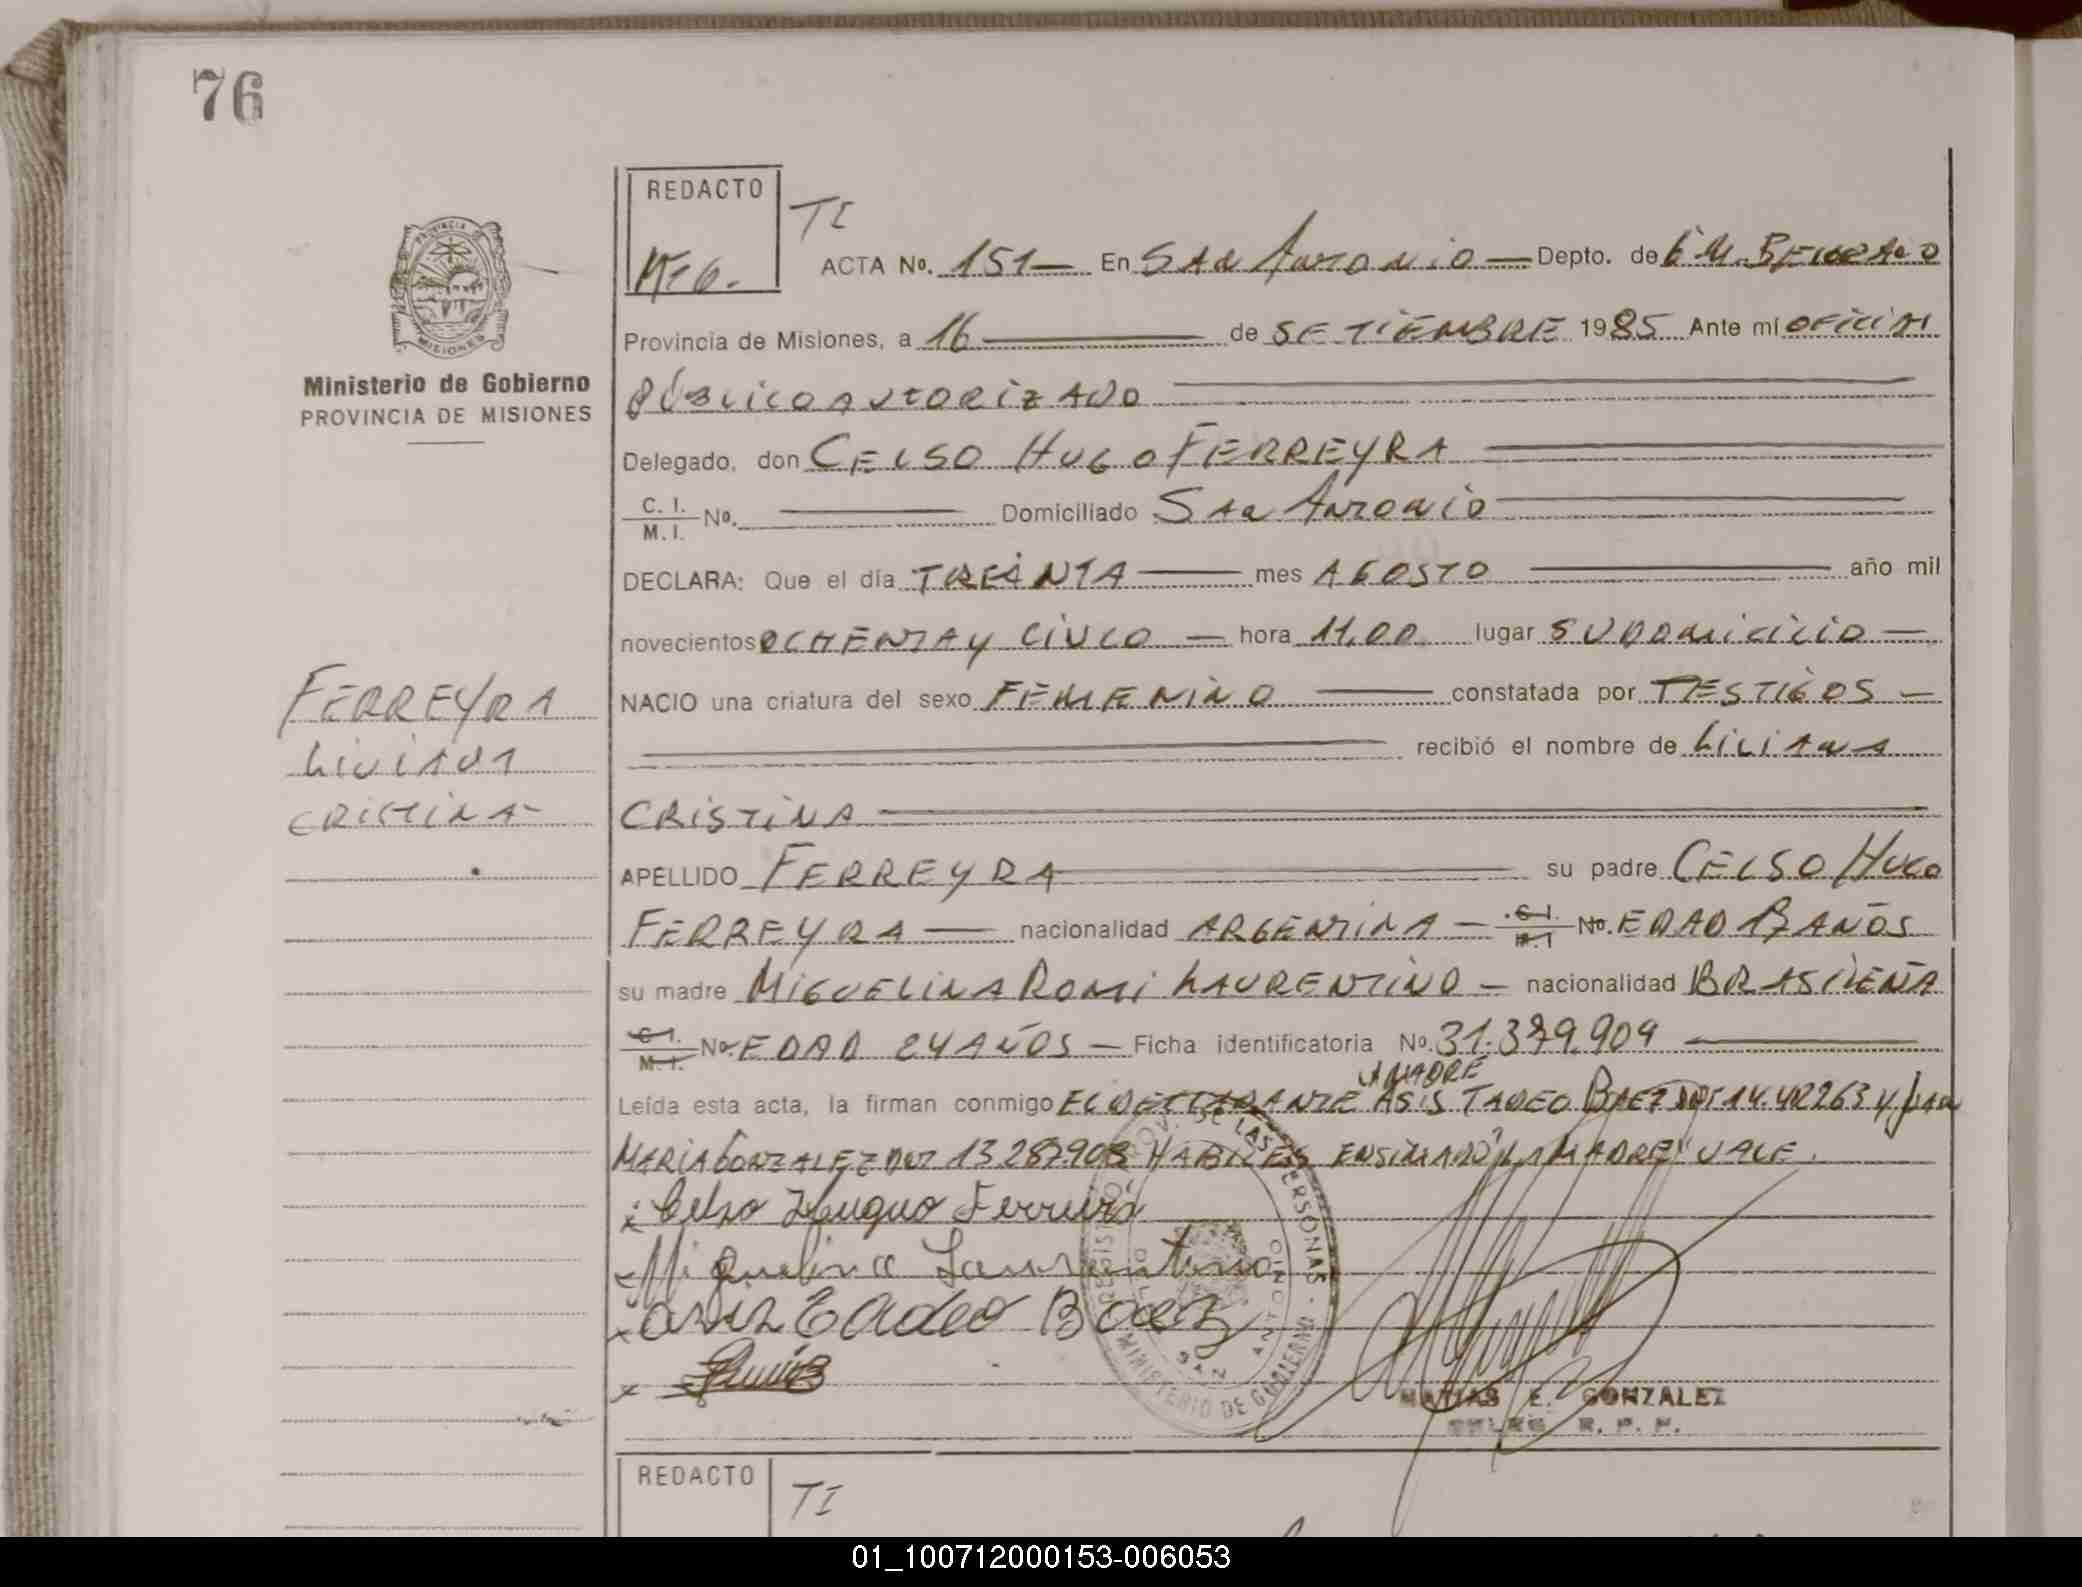 76
REDACTO
TI
ACTA No. 151 — En San Antonio — Depto. de G. M. BELGRANO
Provincia de Misiones, a 16 — de SETIEMBRE 1985 Ante mí OFICIAL
PÚBLICO AUTORIZADO
Ministerio de Gobierno
PROVINCIA DE MISIONES
Delegado, don CELSO HUGO FERREYRA
C. I.
M. I. No. — Domiciliado San Antonio
DECLARA: Que el día TREINTA — mes AGOSTO — año mil
novecientos OCHENTA Y CINCO — hora 11,00 lugar SU DOMICILIO —
NACIO una criatura del sexo FEMENINO — constatada por TESTIGOS —
recibió el nombre de LILIANA
CRISTINA
FERREYRA
LILIANA
CRISTINA
APELLIDO FERREYRA — su padre CELSO HUGO
FERREYRA — nacionalidad ARGENTINA — C.I. M.I No. EDAD 17 AÑOS
su madre MIGUELINA ROMI LAURENTINO — nacionalidad BRASILEÑA
C.I. M.I. No. EDAD 24 AÑOS — Ficha identificatoria No. 31.379.909
LA MADRE
Leída esta acta, la firman conmigo EL DECLARANTE ASIS TADEO BAEZ DNI 14.42263 y
MARIA GONZALEZ DNI 13 287.908 HABILES ENSIMADO "LA MADRE" VALE.
x Celso Huguo Ferreira
x Miguelina Laurentino
x asis Tadeo Baez
x
REGISTRO PROV. DE LAS PERSONAS
MINISTERIO DE GOBIERNO
SAN ANTONIO
MATIAS E. GONZALEZ
DELEG. R. P. P.
REDACTO
TI
01_100712000153-006053